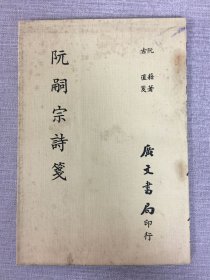 阮籍著
古直箋
廣文書局印行
阮嗣宗詩箋